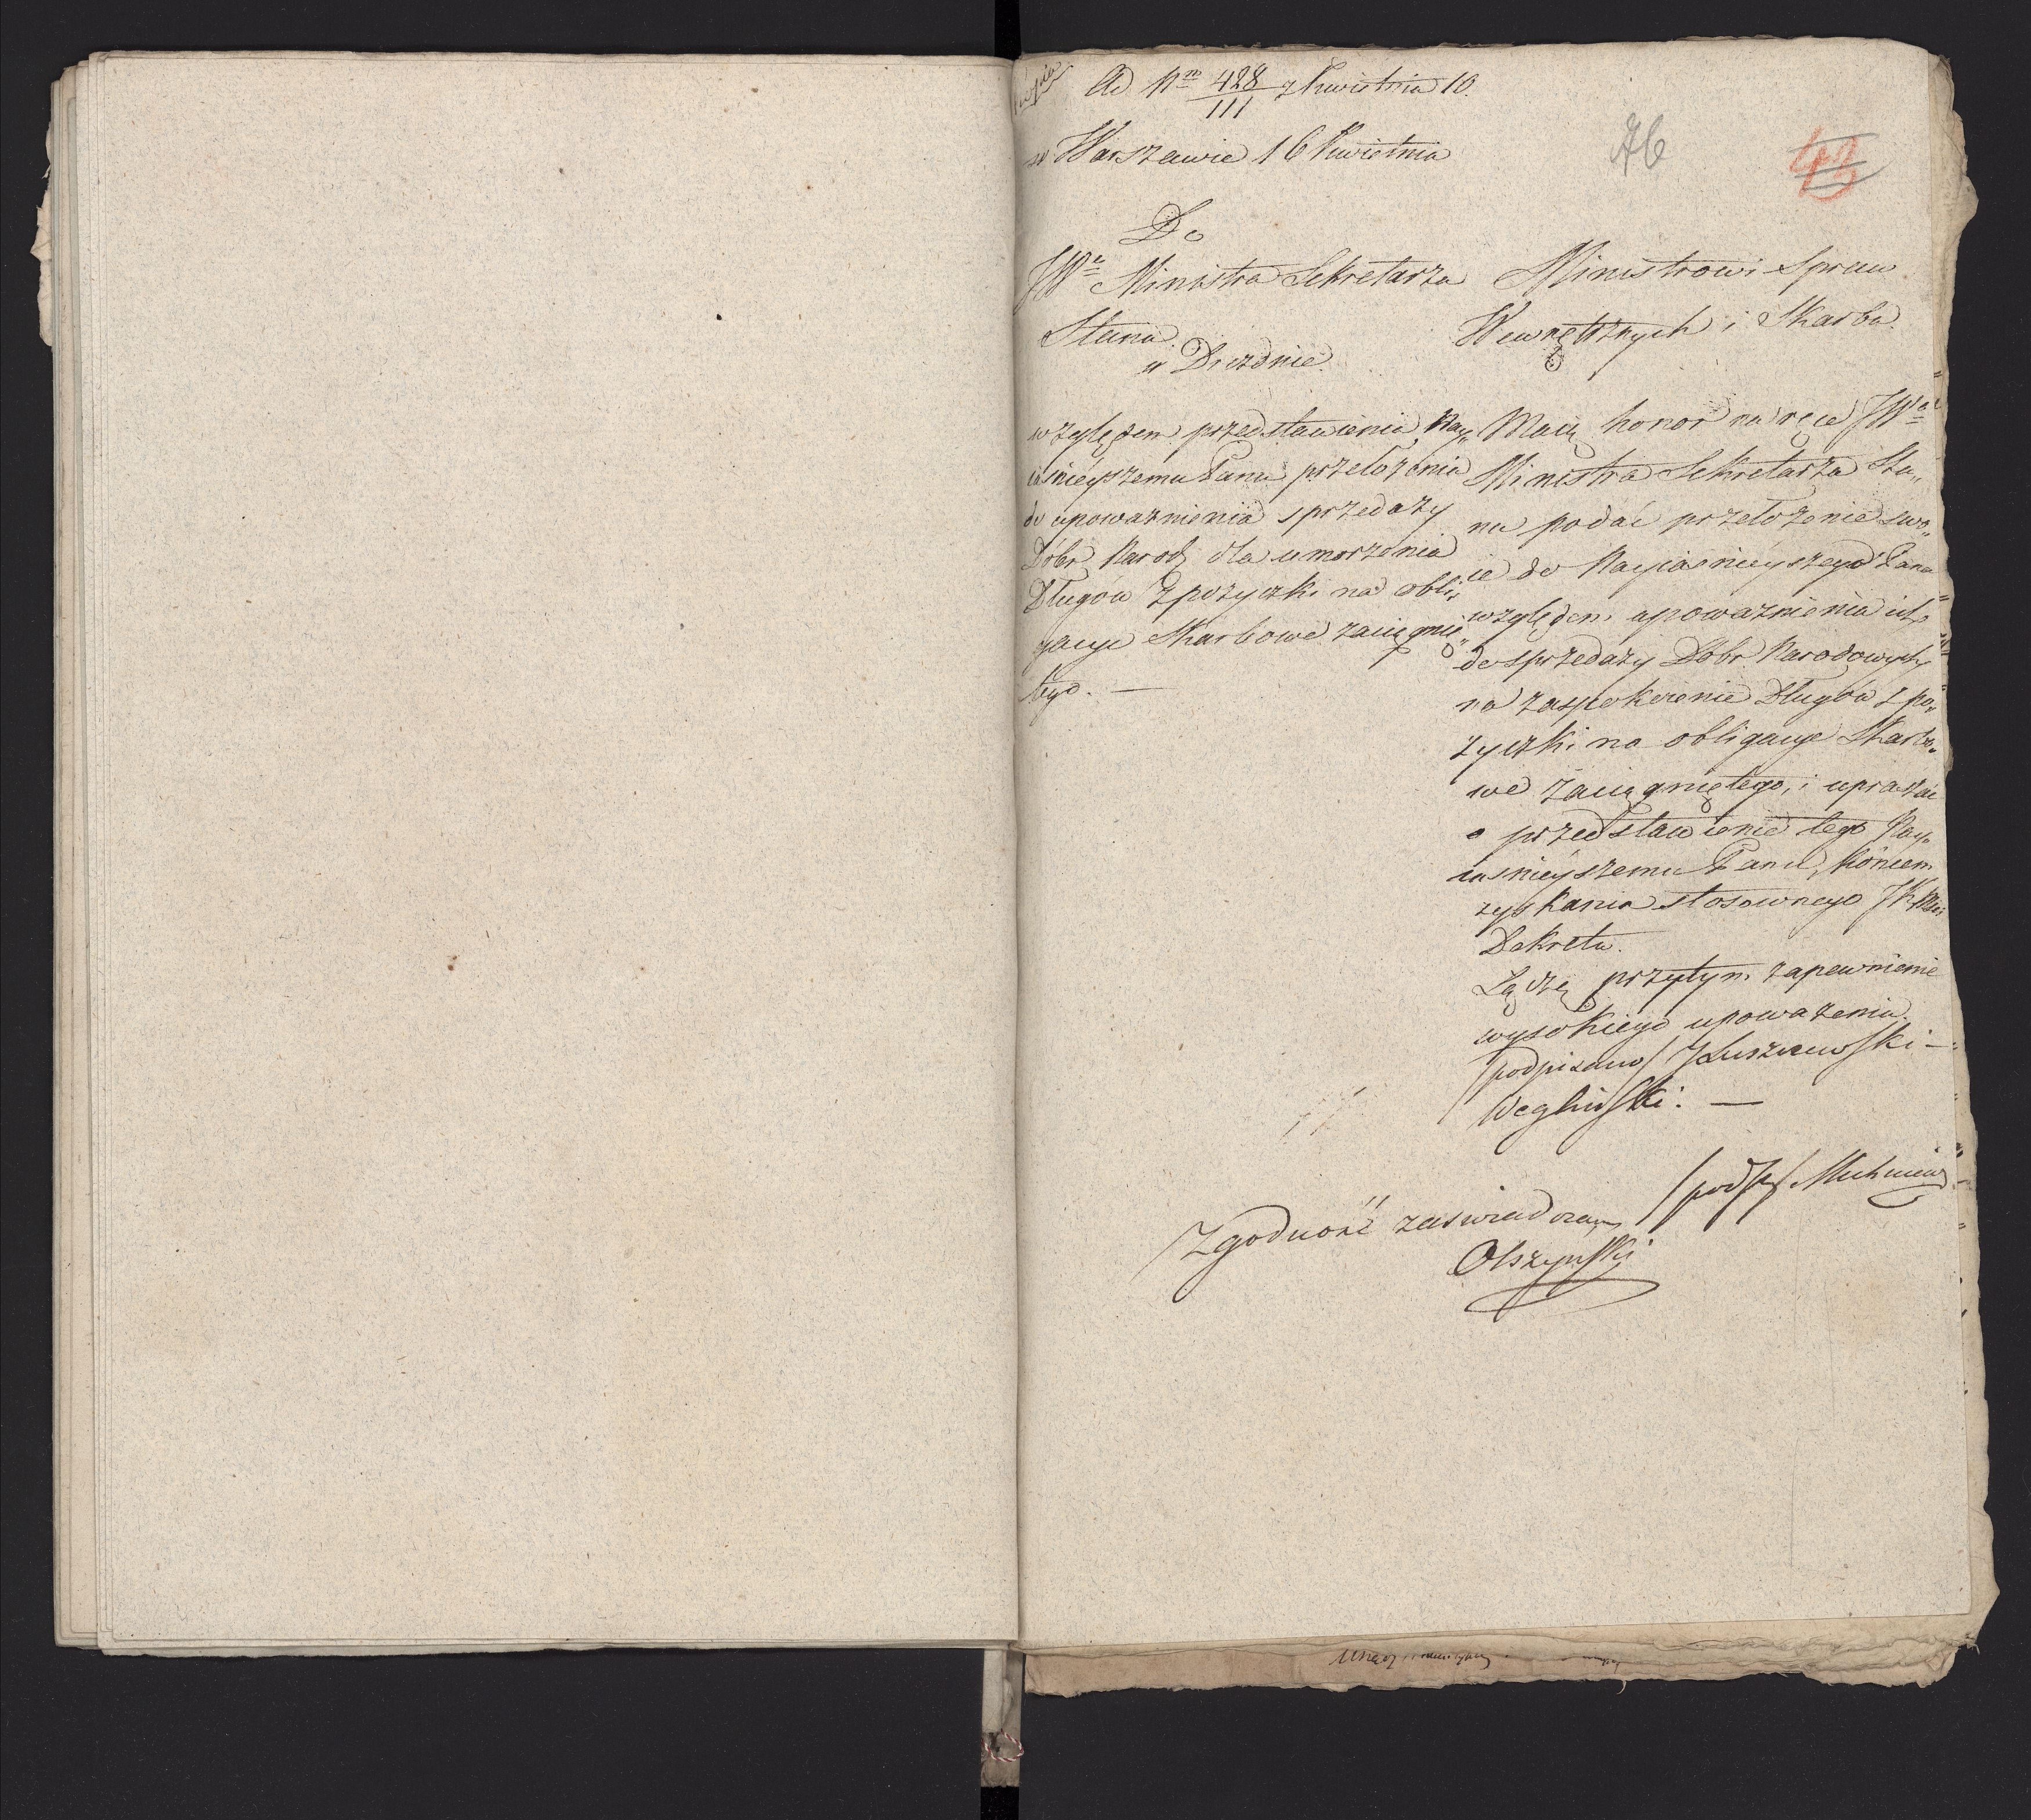 Kopia
Ad Nro 428/111 z Kwietnia 10.
w Warszawie 16 Kwietnia
76
43
Do
JWo Ministra Sekretarza
Stanu
w Dreznie.
względem przedstawienia Nay„
iaśnieyszemu Panu przełożenia
do upoważnienia sprzedaży
Dóbr Narod. dla umorzenia
Długów z pożyczki na obli„
gacye Skarbowe zaciągnię„
tego. —
Ministrowie Spraw
Wewnętrznych i Skarbu
Maią honor na ręce JWo
Ministra Sekretarza Sta„
nu podać przełożenie swo„
ie do Nayiaśnieyszego Pana
względem upoważnienia ich
do sprzedaży Dóbr Narodowych
na zaspokoienie Długów z po„
życzki na obligacye Skarbo„
we zaciągniętego, i upraszać
o przedstawienie tego Nay„
iaśnieyszemu Panu, końcem
zyskania stosownego JKMci
Dekretu.
Łączą przytym zapewnienie
wysokiego upoważenia.
/podpisano/ J Łuszczewski —
Węgliński. —
/podp/ Muchniewz
Zgodność zaświadczam
Olszyński